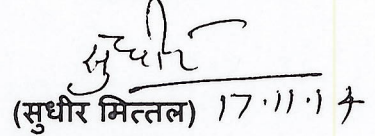 सुधीर
(सुधीर मित्तल) 17.11.14